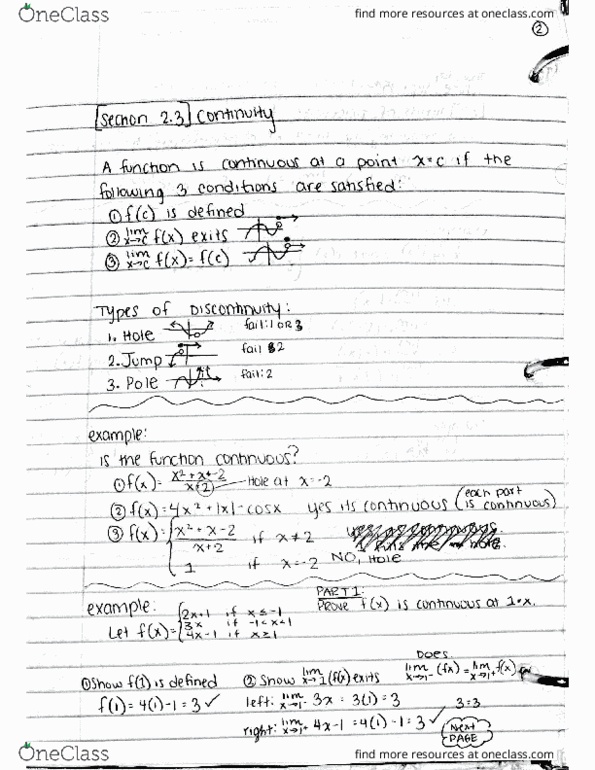 OneClass
find more resources at oneclass.com
2
[Section 2.3] Continuity
A function is continuous at a point x=c if the
following 3 conditions are satisfied:
① f(c) is defined
② lim x→c f(x) exits
③ lim x→c f(x) = f(c)
Types of Discontinuity:
1. Hole fail: 1 OR 3
2. Jump fail 2
3. Pole fail: 2
example:
is the function continuous?
① f(x) = x²+x-2 / x+2 Hole at x=-2
② f(x) = 4x² + |x| - cosx yes its continuous (each part is continuous)
③ f(x) = { x²+x-2 / x+2 if x≠2
1 if x=-2 NO, Hole
example:
PART 1:
Prove f(x) is continuous at 1•x.
Let f(x) = { 2x+1 if x≤-1
3x if -1<x<1
4x-1 if x≥1
① Show f(1) is defined
f(1) = 4(1)-1 = 3 ✓
② Show lim x→1 (f(x) exits
Does
lim x→1⁻ (fx) = lim x→1⁺ f(x)
left: lim x→1⁻ 3x = 3(1) = 3
3=3
right: lim x→1⁺ 4x-1 = 4(1)-1 = 3 ✓
Next
PAGE
OneClass
find more resources at oneclass.com